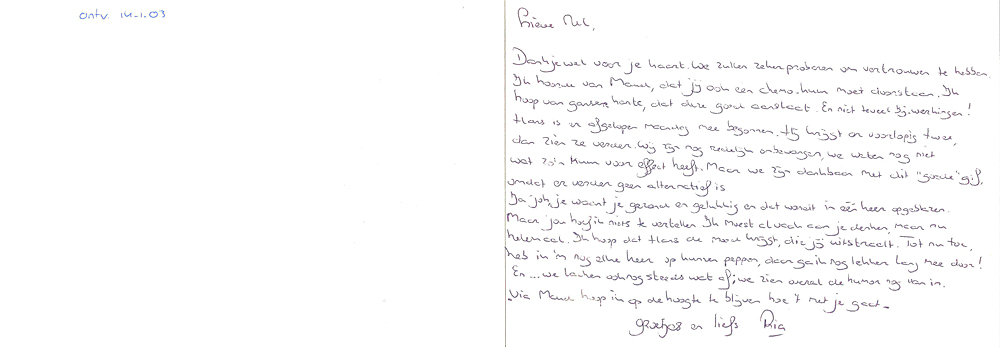 ontv. 14-1.03
Lieve Nel,
Dankjewel voor je kaart. We zullen zeker proberen om vertrouwen te hebben.
Ik hoorde van Maud, dat jij ook een chemo.kuur moet doorstaan. Ik
hoop van ganser harte, dat deze goed aanslaat. En niet teveel bijwerkingen!
Hans is er afgelopen maandag mee begonnen. Hij krijgt er voorlopig twee,
dan zien ze verder. Wij zijn nog redelijk onbevangen, we weten nog niet
wat zo'n kuur voor effect heeft. Maar we zijn dankbaar met dit "goede" gif,
omdat er verder geen alternatief is
Ja joh, je waant je gezond en gelukkig en dat wordt in één keer opgeblazen.
Maar jou hoef ik niets te vertellen. Ik moest al vaak aan je denken, maar nu
helemaal. Ik hoop dat Hans de moed krijgt, die jij uitstraalt. Tot nu toe,
heb ik 'm nog elke keer op kunnen peppen, daar ga ik nog lekker lang mee door!
En ... we lachen ook nog steeds wat af; we zien overal de humor nog van in.
Via Maud hoop ik op de hoogte te blijven hoe 't met je gaat.
groetjes en liefs Ria